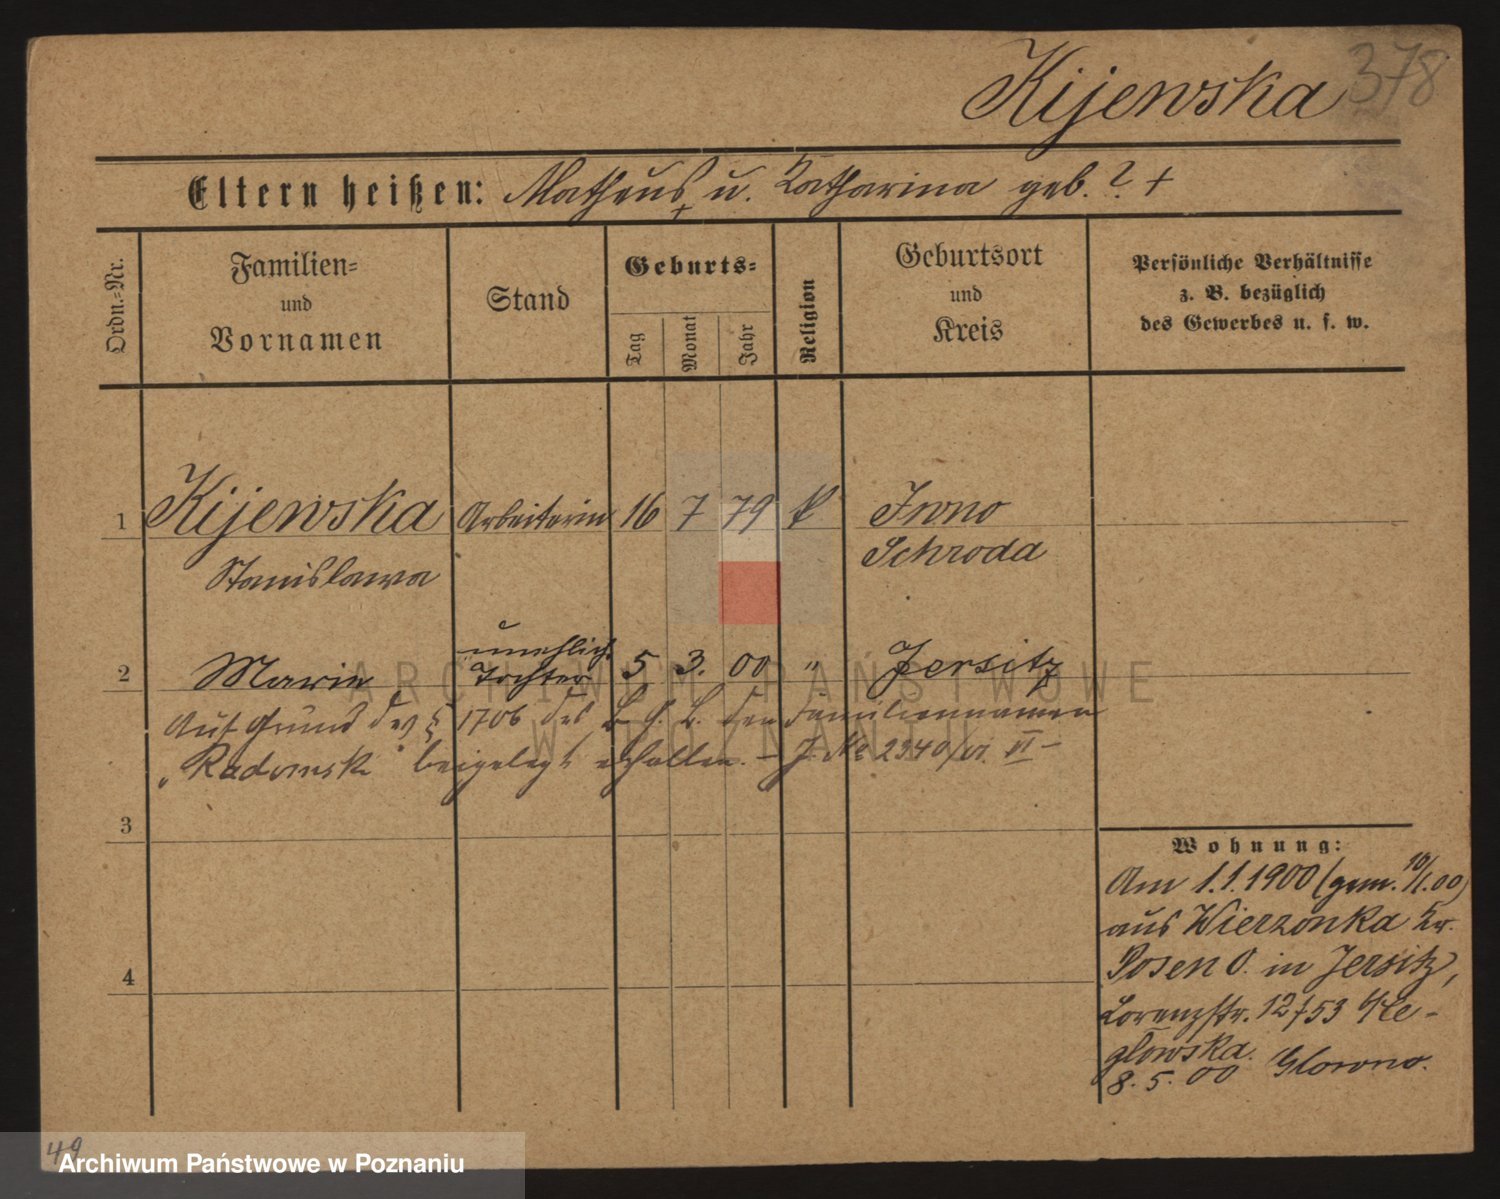 Kijewska 378
Eltern heißen: Matheus u. Katharina geb. ? +
Ordn.=Nr.
Familien=
und
Vornamen
Stand
Geburts=
Tag
Monat
Jahr
Religion
Geburtsort
und
Kreis
Persönliche Verhältnisse
z. B. bezüglich
des Gewerbes u. s. w.
1 Kijewska Arbeiterin 16 7 79 k Inno
Stanislawa Schroda
unehliche
2 Marie Tochter 5 3. 00 " Jersitz
Auf Grund des § 1706 des B. G. B. den Familiennamen
"Radomski" beigelegt erhalten. – J. No 2340/01 VI –
3
4
Wohnung:
Am 1.1.1900 (gem. 10/1.00)
aus Wierzonka Kr.
Posen O. in Jersitz,
Lorenzstr. 12/53
glowska.
8. 5. 00 Glowno.
49
ARCHIWUM PAŃSTWOWE
W POZNANIU
Archiwum Państwowe w Poznaniu